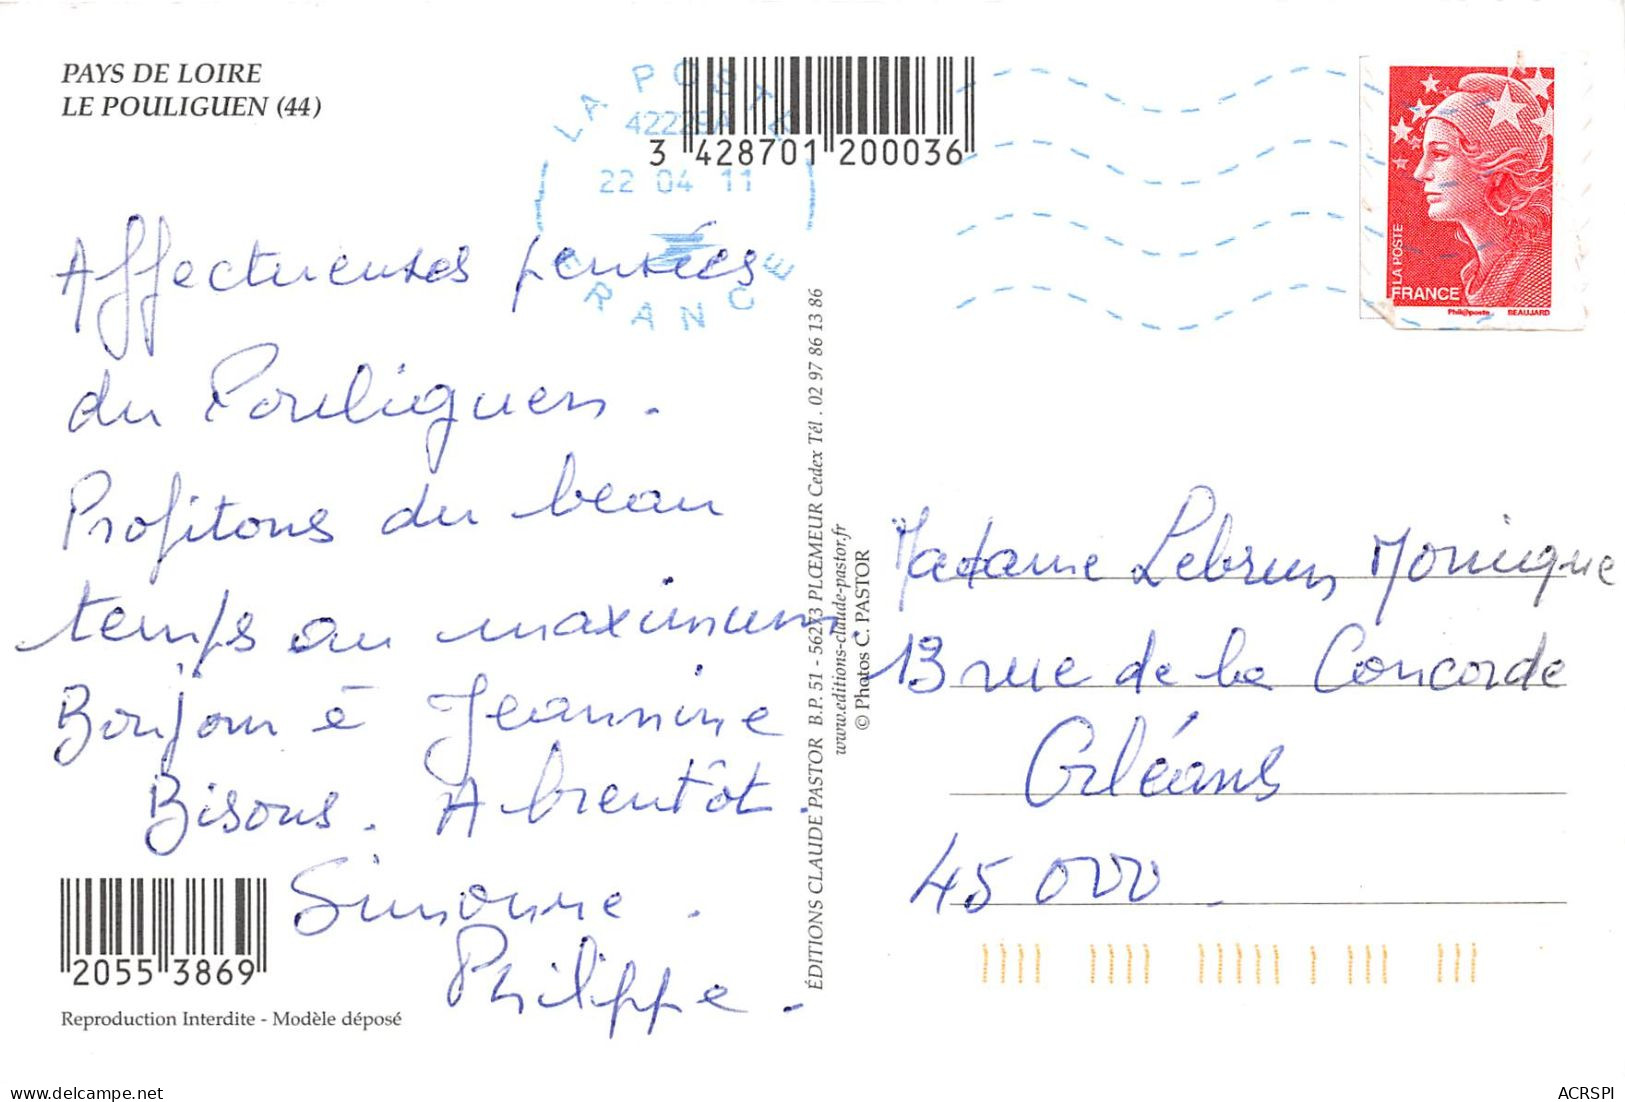 PAYS DE LOIRE
LE POULIGUEN (44)
3 428701 200036
LA POSTE
42229A
22 04 11
FRANCE
LA POSTE
FRANCE
Phil@poste BEAUJARD
Affectueuses pensées
du Pouliguen.
Profitons du beau
temps au maximum.
Bonjour à Jeannine
Bisous. A bientôt.
Simonne.
Philippe.
2055 3869
Reproduction Interdite - Modèle déposé
ÉDITIONS CLAUDE PASTOR B.P. 51 - 56273 PLŒMEUR Cedex Tél. 02 97 86 13 86
www.editions-claude-pastor.fr
© Photos C. PASTOR
Madame Lebrun Monique
13 rue de la Concorde
Orléans
45000.
delcampe.net
ACRSPI